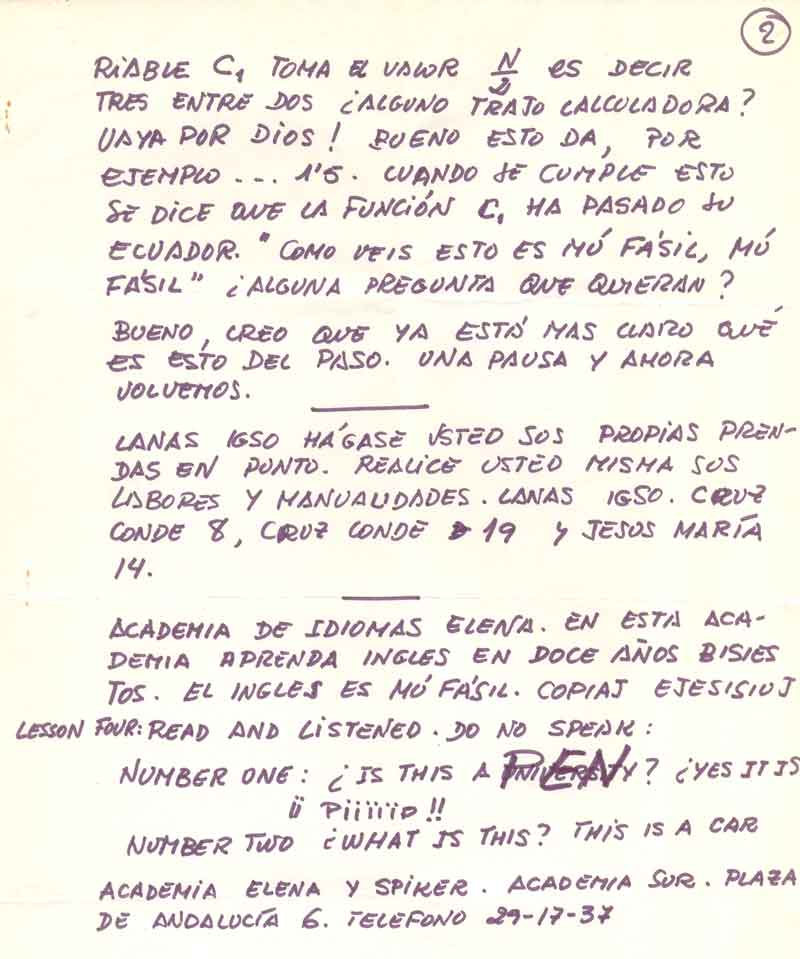 2
RIABLE C₁ TOMA EL VALOR N/2 ES DECIR
TRES ENTRE DOS ¿ALGUNO TRAJO CALCULADORA?
VAYA POR DIOS! BUENO ESTO DA, POR
EJEMPLO... 1'5. CUANDO SE CUMPLE ESTO
SE DICE QUE LA FUNCIÓN C₁ HA PASADO SU
ECUADOR. "COMO VEIS ESTO ES MÚ FÁSIL, MÚ
FÁSIL" ¿ALGUNA PREGUNTA QUE QUIERAN?
BUENO, CREO QUE YA ESTÁ MAS CLARO QUÉ
ES ESTO DEL PASO. UNA PAUSA Y AHORA
VOLVEMOS.
LANAS IGSO HÁGASE USTED SUS PROPIAS PREN-
DAS EN PUNTO. REALICE USTED MISMA SUS
LABORES Y MANUALIDADES. LANAS IGSO. CRUZ
CONDE 8, CRUZ CONDE 19 Y JESUS MARÍA
14.
ACADEMIA DE IDIOMAS ELENA. EN ESTA ACA-
DEMIA APRENDA INGLES EN DOCE AÑOS BISIES
TOS. EL INGLES ES MÚ FÁSIL. COPIAJ EJESISIOJ
LESSON FOUR: READ AND LISTENED. DO NO SPEAK:
NUMBER ONE: ¿IS THIS A PEN? ¿YES IT IS
¡¡ Piiiiiip!!
NUMBER TWO ¿WHAT IS THIS? THIS IS A CAR
ACADEMIA ELENA Y SPIKER. ACADEMIA SUR. PLAZA
DE ANDALUCÍA 6. TELEFONO 29-17-37